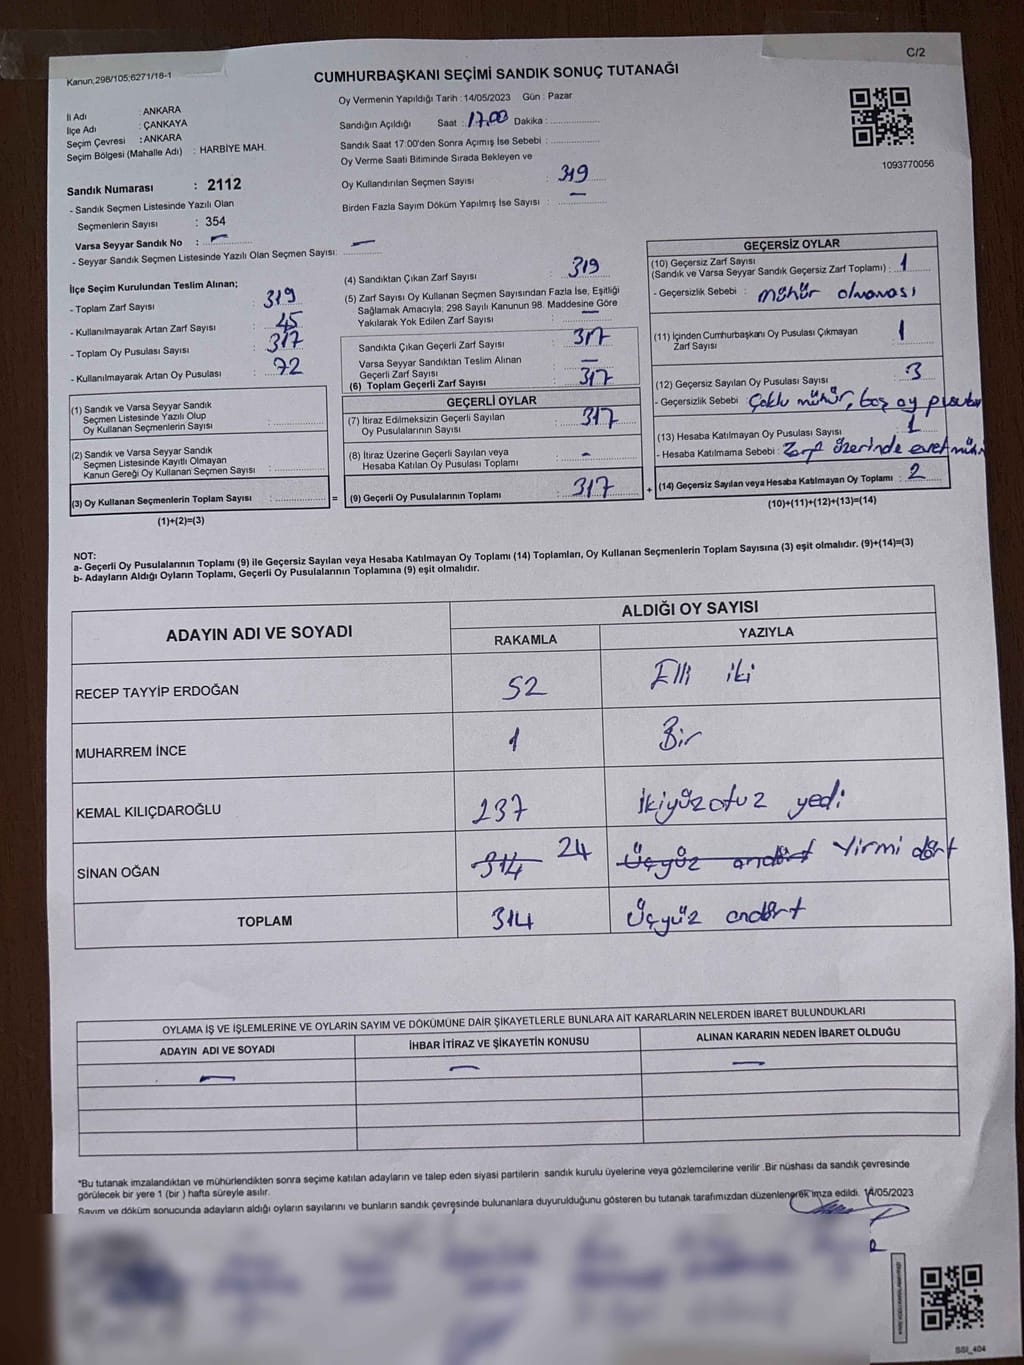 C/2
Kanun,298/105;6271/18-1
CUMHURBAŞKANI SEÇİMİ SANDIK SONUÇ TUTANAĞI
Oy Vermenin Yapıldığı Tarih : 14/05/2023 Gün : Pazar
İl Adı : ANKARA
İlçe Adı : ÇANKAYA
Seçim Çevresi : ANKARA
Seçim Bölgesi (Mahalle Adı) : HARBİYE MAH.
Sandığın Açıldığı Saat : 17.00 Dakika :
Sandık Saat 17:00'den Sonra Açımış İse Sebebi :
Oy Verme Saati Bitiminde Sırada Bekleyen ve
Oy Kullandırılan Seçmen Sayısı : 319
Birden Fazla Sayım Döküm Yapılmış İse Sayısı : —
1093770056
Sandık Numarası : 2112
- Sandık Seçmen Listesinde Yazılı Olan
Seçmenlerin Sayısı : 354
Varsa Seyyar Sandık No : —
- Seyyar Sandık Seçmen Listesinde Yazılı Olan Seçmen Sayısı: —
İlçe Seçim Kurulundan Teslim Alınan;
- Toplam Zarf Sayısı : 319
- Kullanılmayarak Artan Zarf Sayısı : 45
- Toplam Oy Pusulası Sayısı : 317
- Kullanılmayarak Artan Oy Pusulası : 72
(1) Sandık ve Varsa Seyyar Sandık
Seçmen Listesinde Yazılı Olup
Oy Kullanan Seçmenlerin Sayısı :
(2) Sandık ve Varsa Seyyar Sandık
Seçmen Listesinde Kayıtlı Olmayan
Kanun Gereği Oy Kullanan Seçmen Sayısı :
(3) Oy Kullanan Seçmenlerin Toplam Sayısı : =
(1)+(2)=(3)
(4) Sandıktan Çıkan Zarf Sayısı : 319
(5) Zarf Sayısı Oy Kullanan Seçmen Sayısından Fazla İse, Eşitliği
Sağlamak Amacıyla; 298 Sayılı Kanunun 98. Maddesine Göre
Yakılarak Yok Edilen Zarf Sayısı : —
Sandıkta Çıkan Geçerli Zarf Sayısı : 317
Varsa Seyyar Sandıktan Teslim Alınan
Geçerli Zarf Sayısı : —
(6) Toplam Geçerli Zarf Sayısı : 317
GEÇERLİ OYLAR
(7) İtiraz Edilmeksizin Geçerli Sayılan
Oy Pusulalarının Sayısı : 317
(8) İtiraz Üzerine Geçerli Sayılan veya
Hesaba Katılan Oy Pusulası Toplamı : -
(9) Geçerli Oy Pusulalarının Toplamı : 317 +
GEÇERSİZ OYLAR
(10) Geçersiz Zarf Sayısı
(Sandık ve Varsa Seyyar Sandık Geçersiz Zarf Toplamı) : 1
- Geçersizlik Sebebi : mühür olmaması
(11) İçinden Cumhurbaşkanı Oy Pusulası Çıkmayan
Zarf Sayısı : 1
(12) Geçersiz Sayılan Oy Pusulası Sayısı : 3
- Geçersizlik Sebebi : Çoklu mühür, boş oy pusulası
(13) Hesaba Katılmayan Oy Pusulası Sayısı : 1
- Hesaba Katılmama Sebebi : Zarf üzerinde evet
(14) Geçersiz Sayılan veya Hesaba Katılmayan Oy Toplamı : 2
(10)+(11)+(12)+(13)=(14)
NOT:
a- Geçerli Oy Pusulalarının Toplamı (9) ile Geçersiz Sayılan veya Hesaba Katılmayan Oy Toplamı (14) Toplamları, Oy Kullanan Seçmenlerin Toplam Sayısına (3) eşit olmalıdır. (9)+(14)=(3)
b- Adayların Aldığı Oyların Toplamı, Geçerli Oy Pusulalarının Toplamına (9) eşit olmalıdır.
ADAYIN ADI VE SOYADI
ALDIĞI OY SAYISI
RAKAMLA YAZIYLA
RECEP TAYYİP ERDOĞAN 52 Elli iki
MUHARREM İNCE 1 Bir
KEMAL KILIÇDAROĞLU 237 İkiyüzotuz yedi
SİNAN OĞAN 314 24 Üçyüz ondört Yirmi dört
TOPLAM 314 Üçyüz ondört
OYLAMA İŞ VE İŞLEMLERİNE VE OYLARIN SAYIM VE DÖKÜMÜNE DAİR ŞİKAYETLERLE BUNLARA AİT KARARLARIN NELERDEN İBARET BULUNDUKLARI
ADAYIN ADI VE SOYADI İHBAR İTİRAZ VE ŞİKAYETİN KONUSU ALINAN KARARIN NEDEN İBARET OLDUĞU
— — —
*Bu tutanak imzalandıktan ve mühürlendikten sonra seçime katılan adayların ve talep eden siyasi partilerin sandık kurulu üyelerine veya gözlemcilerine verilir .Bir nüshası da sandık çevresinde
görülecek bir yere 1 (bir ) hafta süreyle asılır.
Sayım ve döküm sonucunda adayların aldığı oyların sayılarını ve bunların sandık çevresinde bulunanlara duyurulduğunu gösteren bu tutanak tarafımızdan düzenlenerek imza edildi. 14/05/2023
SSI_404